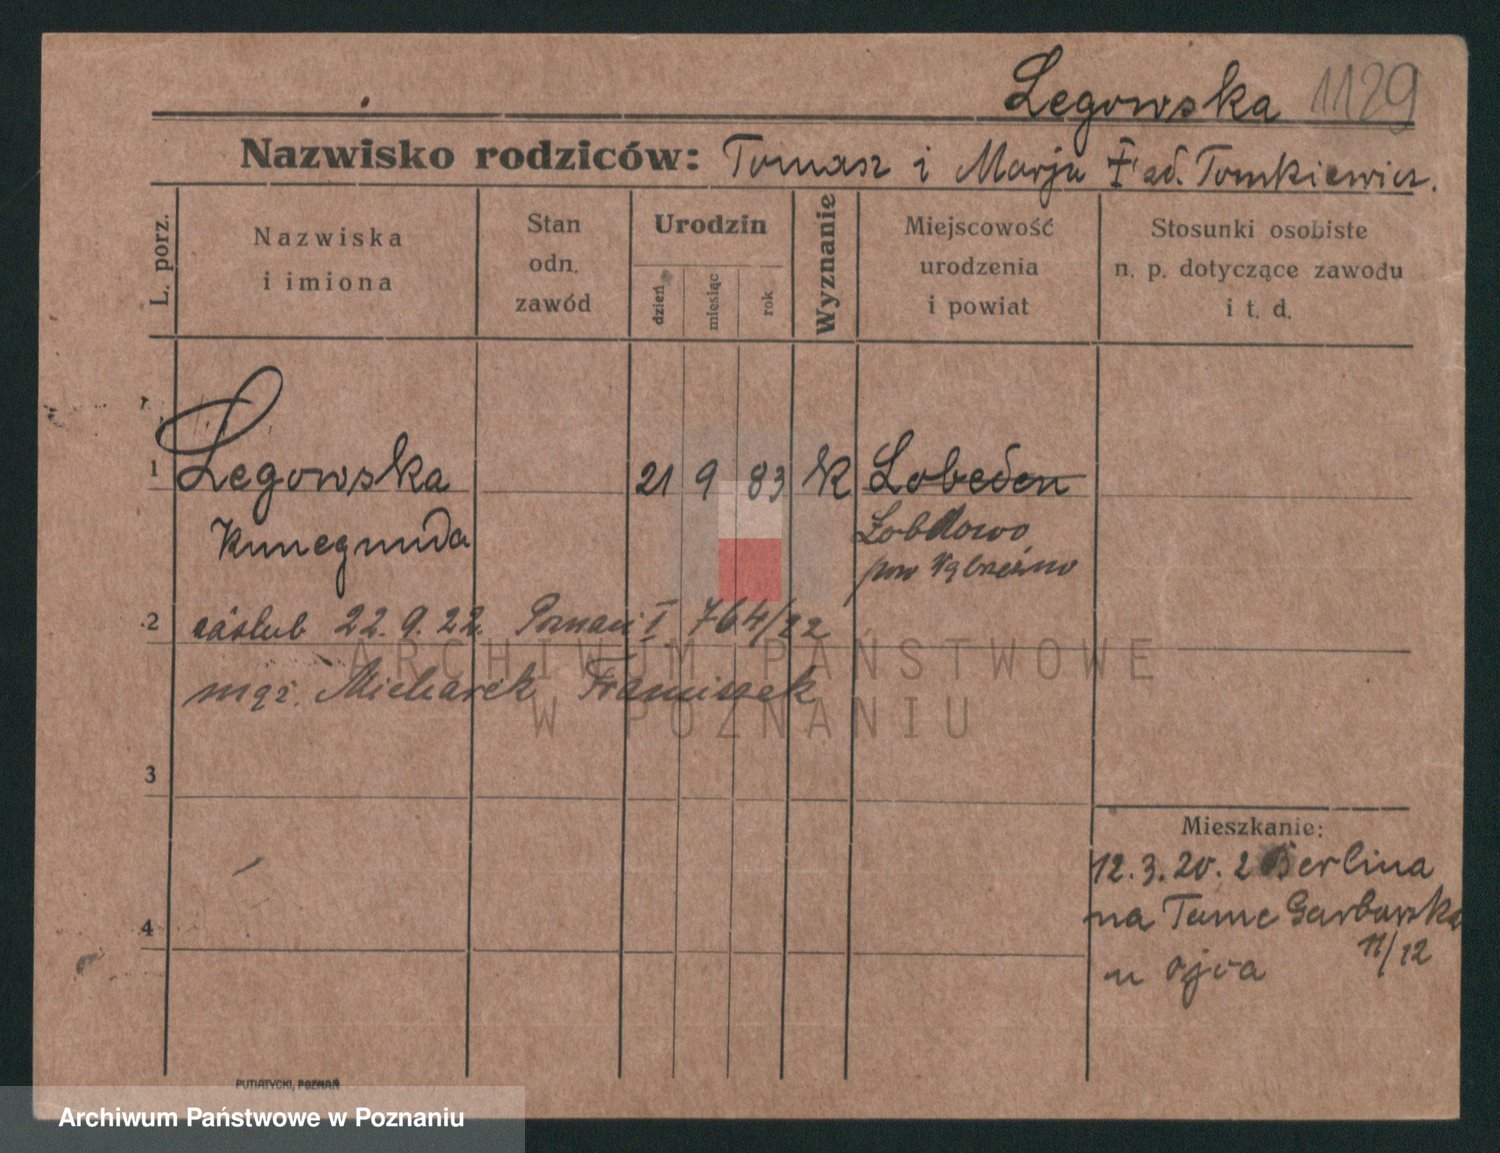 Legowska 1129
Nazwisko rodziców: Tomasz i Marja Tomkiewicz.
L. porz.
Nazwiska
i imiona
Stan
odn.
zawód
Urodzin
dzień
miesiąc
rok
Wyznanie
Miejscowość
urodzenia
i powiat
Stosunki osobiste
n. p. dotyczące zawodu
i t. d.
1 Legowska 21 9 83 k Lobeden
Kunegunda Łobdowo
pow Wąbrzeźno
2 zaślub 22.9.22. Poznań I 764/22
ARCHIWUM PAŃSTWOWE
mąż. Micharek Franciszek
W POZNANIU
3
Mieszkanie:
12.3.20. z Berlina
4 na Tamę Garbarską
11/12
u ojca
PUTIATYCKI, POZNAŃ
Archiwum Państwowe w Poznaniu